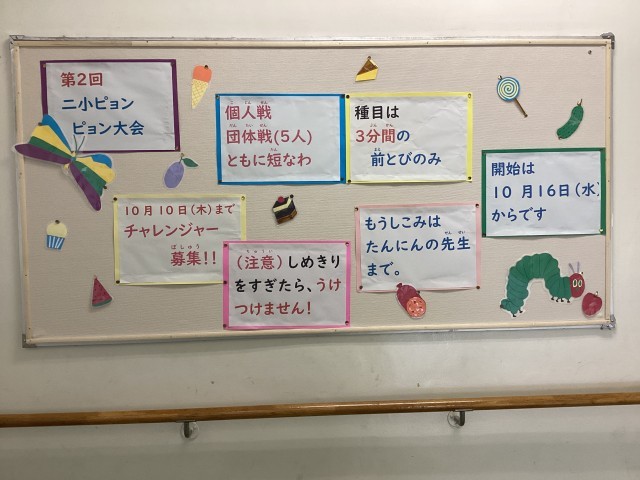 第2回
二小ピョン
ピョン大会
個人戦
団体戦(5人)
ともに短なわ
種目は
3分間の
前とびのみ
開始は
10月16日(水)
からです
10月10日(木)まで
チャレンジャー
募集!!
(注意)しめきり
をすぎたら、うけ
つけません!
もうしこみは
たんにんの先生
まで。